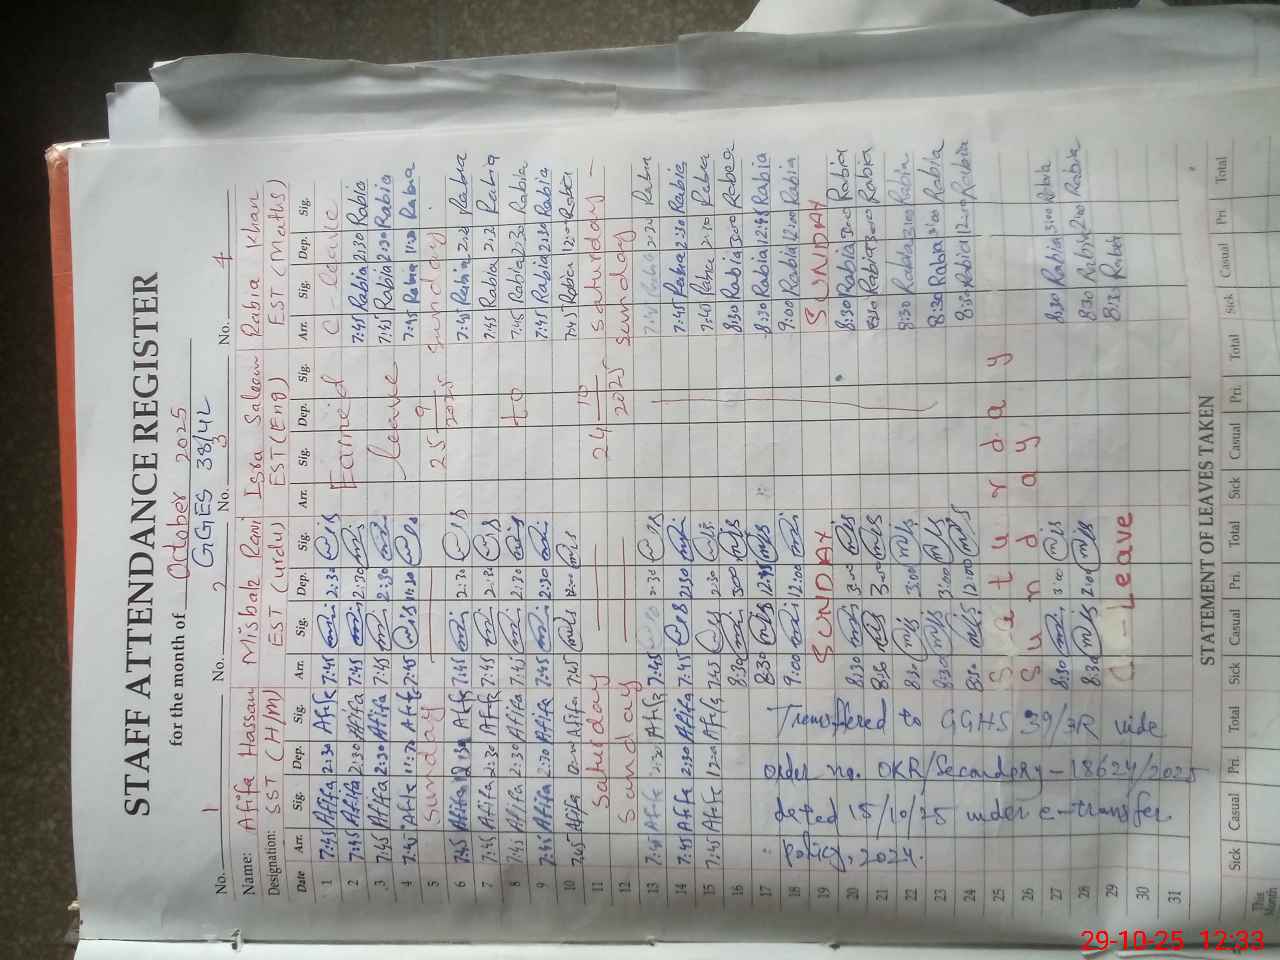 STAFF ATTENDANCE REGISTER
for the month of October 2025
GGES 38/4L
No. 1 No. 2 No. 3 No. 4
Name: Afifa Hassan Misbah Rani Isra Saleem Rabia Khan
Designation: SST (H/M) EST (urdu) EST (Eng) EST (Maths)
Date Arr. Sig. Dep. Sig. Arr. Sig. Dep. Sig. Arr. Sig. Dep. Sig. Arr. Sig. Dep. Sig.
1 7:45 Afifa 2:30 Afifa 7:45 2:30 Earned C - leave
2 7:45 Afifa 2:30 Afifa 7:45 2:30 7:45 Rabia 2:30 Rabia
3 7:45 Afifa 2:30 Afifa 7:45 2:30 leave 7:45 Rabia 2:30 Rabia
4 7:45 Afifa 11:30 Afifa 7:45 11:30 7:45 Rabia 11:30 Rabia
5 Sunday 25 9 2025 Sunday
6 7:45 Afifa 2:30 Afifa 7:45 2:30 7:45 Rabia 2:30 Rabia
7 7:45 Afifa 2:30 Afifa 7:45 2:30 7:45 Rabia 2:30 Rabia
8 7:45 Afifa 2:30 Afifa 7:45 2:30 to 7:45 Rabia 2:30 Rabia
9 7:45 Afifa 2:30 Afifa 7:45 2:30 7:45 Rabia 2:30 Rabia
10 7:45 Afifa 12:00 Afifa 7:45 12:00 7:45 Rabia 12:00 Rabia
11 Saturday 24 10 2025 Saturday
12 Sunday Sunday
13 7:45 Afifa 2:30 Afifa 7:45 2:30 7:45 Rabia 2:30 Rabia
14 7:45 Afifa 2:30 Afifa 7:45 2:30 7:45 Rabia 2:30 Rabia
15 7:45 Afifa 12:00 Afifa 7:45 2:30 7:45 Rabia 2:30 Rabia
16 8:30 3:00 8:30 Rabia 3:00 Rabia
17 8:30 12:45 8:30 Rabia 12:45 Rabia
18 9:00 12:00 9:00 Rabia 12:00 Rabia
19 SUNDAY SUNDAY
20 8:30 3:00 8:30 Rabia 3:00 Rabia
21 8:30 3:00 8:30 Rabia 3:00 Rabia
22 8:30 3:00 8:30 Rabia 3:00 Rabia
23 8:30 3:00 8:30 Rabia 3:00 Rabia
24 8:30 12:00 8:30 Rabia 12:00 Rabia
25 Saturday
26 Sunday
27 8:30 3:00 8:30 Rabia 3:00 Rabia
28 8:30 2:00 8:30 Rabia 2:00 Rabia
29 C - Leave 8:30 Rabia
30
31
Transfered to GGHS 39/3R vide
order no. OKR/Secondary-18624/2025
dated 15/10/25 under e-transfer
policy-2024.
STATEMENT OF LEAVES TAKEN
Sick Casual Pri. Total Sick Casual Pri. Total Sick Casual Pri. Total Sick Casual Pri Total
This Month
29-10-25 12:33